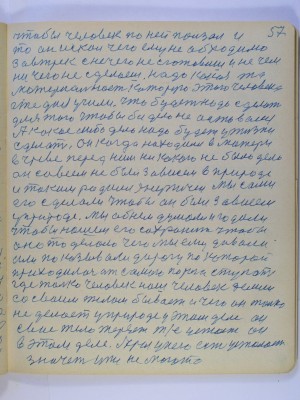 57
чтобы человек по ней ползал и
то он искал чего ему необходимо
завтрек с нечего не сготовиш и не чем
ни чего не сделаеш. надо какая то
материальность которую этого человека
учили, что будет надо сделать
для того чтобы было не оставаться
А какое либо дело надо будет у жизни
сделать. он когда находился в матери
в чреве перед ним ни какого не было дела
он совсем не был зависим в природе
и таким родился энергичен мы сами
его сделали чтобы он был зависим
у природе. Мы об нем думали и гадали
чтобы нашего его сохранить чтобы
оно то делало чего мы ему давали
или показывали дорогу по которой
приходилось от самого порога ступать
где только человек наш человек
со своим телом бывает и чего он только
не делает у природе у этом деле он
свое тело теряет он
в этом деле. А раз у него есть усталость
значит уже не может